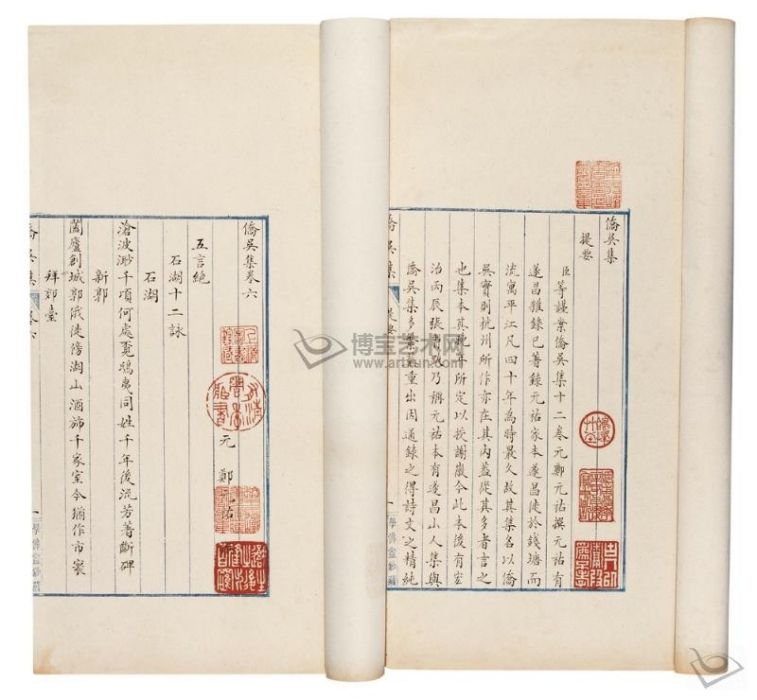 僑吳集
提要
臣等謹案僑吳集十二卷元鄭元祐撰元祐有
遂昌雜錄已著錄元祐家本遂昌徙於錢塘而
流寓平江凡四十年為時最久故其集名以僑
吳實則杭州所作亦在其內蓋從其多者言之
也集本其晚年所定以授謝徽今此本後有宏
治丙辰張習跋乃稱元祐本有遂昌山人集與
僑吳集多繁蕪重出因通錄之得詩文之精純
僑吳集 提要 一
僑吳集卷六
元 鄭元祐
五言絕
石湖十二詠
石湖
滄波渺千頃何處覓鴟夷同姓千年後流芳著斷碑
新郭
闔廬創城郭俄徙傍湖山酒旆千家室今猶作市寰
拜郊臺
僑吳集 卷六 一
博宝艺术网
www.artxun.com